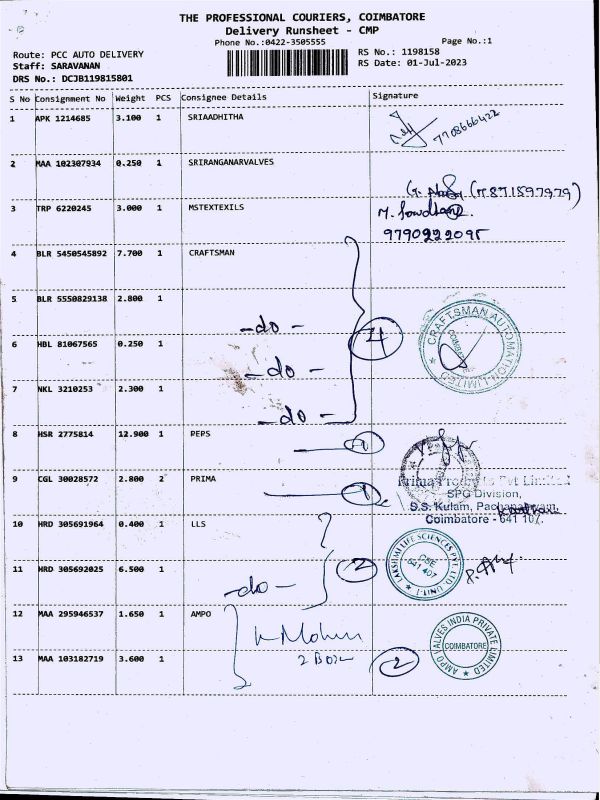 THE PROFESSIONAL COURIERS, COIMBATORE
Delivery Runsheet - CMP
Phone No.:0422-3505555 Page No.:1
Route: PCC AUTO DELIVERY RS No.: 1198158
Staff: SARAVANAN RS Date: 01-Jul-2023
DRS No.: DCJB119815801
S No Consignment No Weight PCS Consignee Details Signature
1 APK 1214685 3.100 1 SRIAADHITHA
7708666422
2 MAA 102307934 0.250 1 SRIRANGANARVALVES
3 TRP 6220245 3.000 1 MSTEXTEXILS
9790222095
4 BLR 5450545892 7.700 1 CRAFTSMAN
5 BLR 5550829138 2.800 1
- do -
CRAFTSMAN AUTOMATION LIMITED
COIMBATORE
6 HBL 81067565 0.250 1
4
- do -
7 NKL 3210253 2.300 1
- do -
8 HSR 2775814 12.900 1 PEPS
1
9 CGL 30028572 2.800 2 PRIMA
1
Prima Products Pvt Limited
SPG Division,
S.S. Kulam, Pachapalayam,
Coimbatore - 641 107.
10 HRD 305691964 0.400 1 LLS
11 HRD 305692025 6.500 1
2
- do -
LAKSHMI LIFE SCIENCES PVT. LTD. UNIT-I
CBE
641 407
12 MAA 295946537 1.650 1 AMPO
K Mohan
2 Box
2
AMPO VALVES INDIA PRIVATE LIMITED
COIMBATORE
13 MAA 103182719 3.600 1